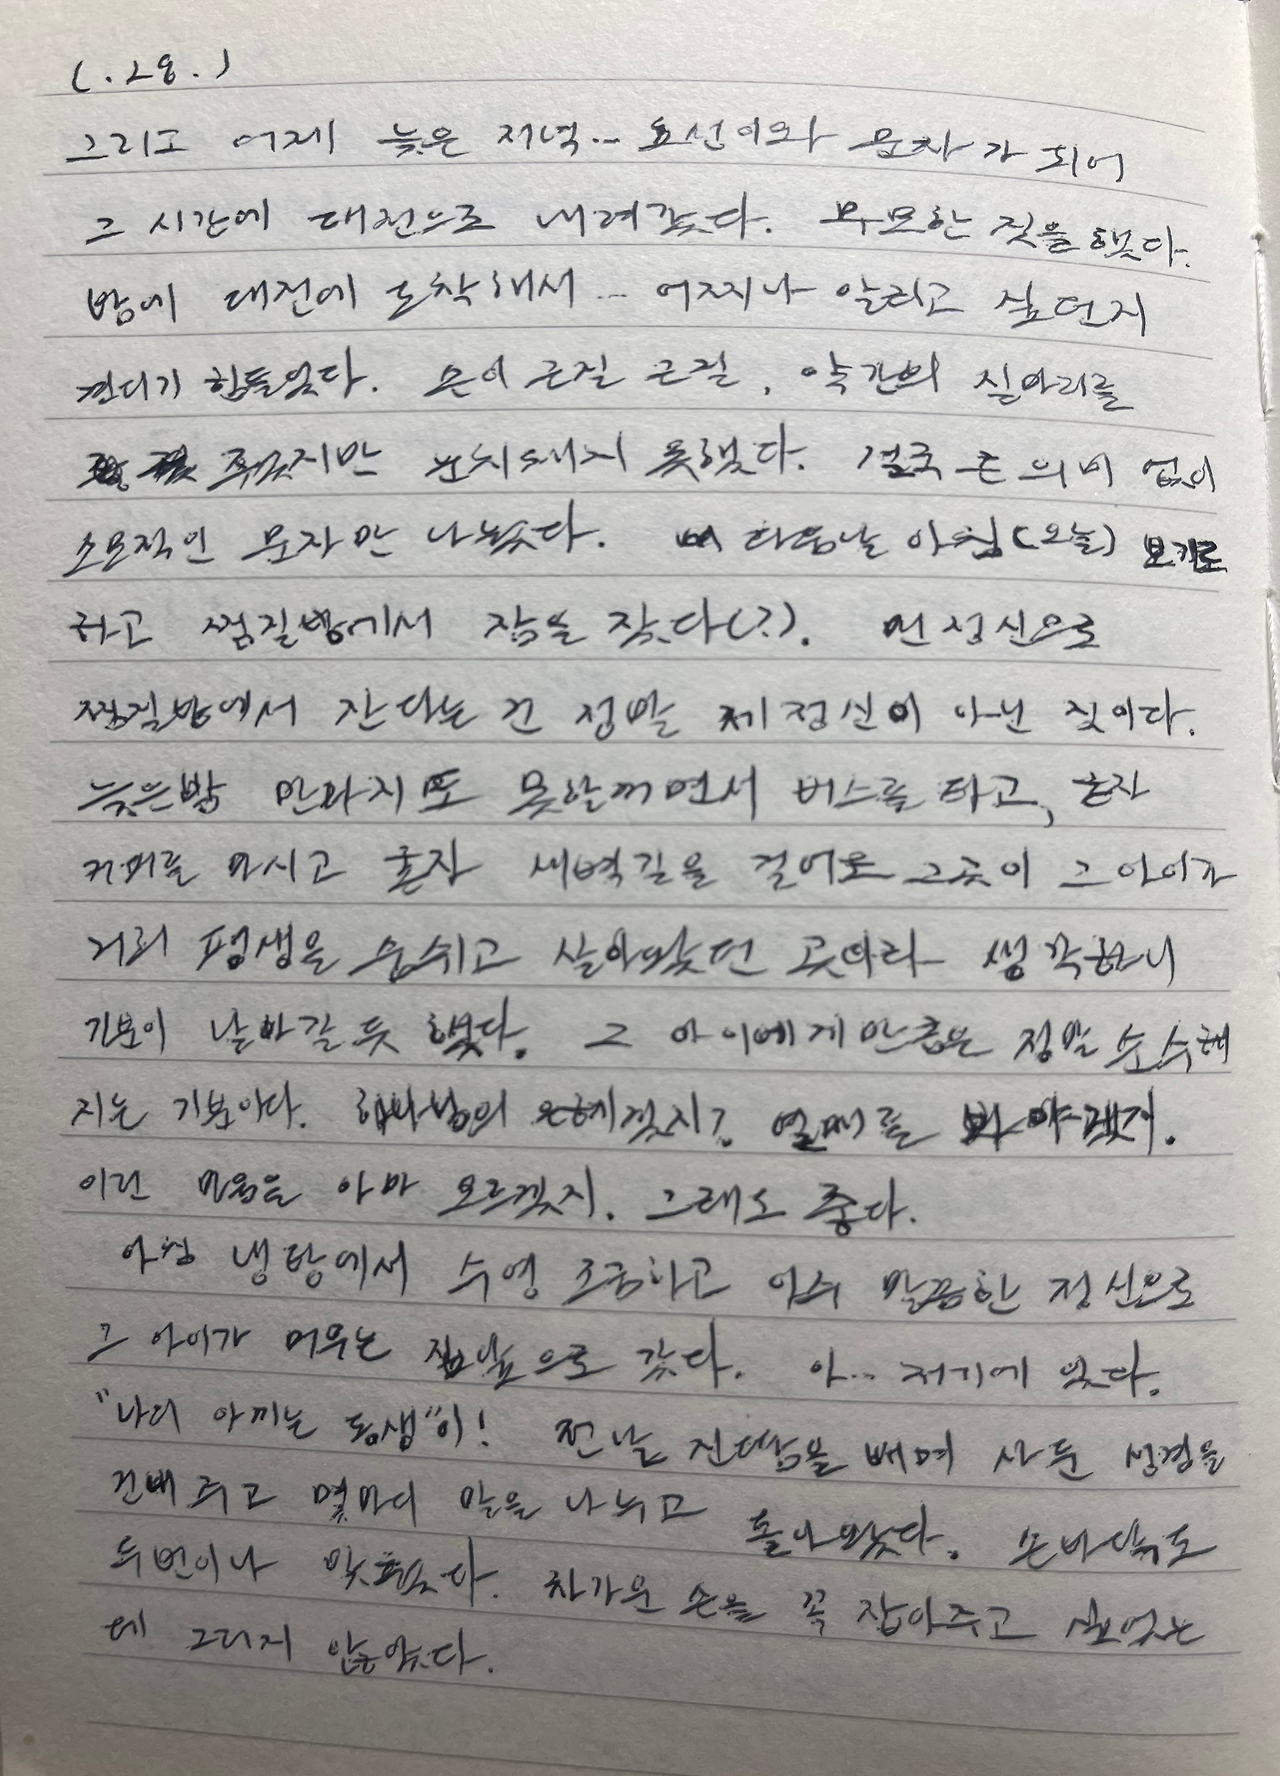 ( . 28 . )
그리고 어제 늦은 저녁... 효선이와 문자가 되어
그 시간에 대전으로 내려갔다. 무모한 짓을 했다.
밤에 대전에 도착해서 ... 어찌나 알리고 싶던지
견디기 힘들었다. 손이 근질 근질, 약간의 실마리를
주었지만 눈치채지 못했다. 결국 큰 의미 없이
소모적인 문자만 나눴다. 다음날 아침(오늘) 보기로
하고 찜질방에서 잠을 잤다(?). 맨정신으로
찜질방에서 잔다는 건 정말 제정신이 아닌 짓이다.
늦은밤 만나지도 못할꺼면서 버스를 타고, 혼자
커피를 마시고 혼자 새벽길을 걸어도 그곳이 그 아이가
거의 평생을 숨쉬고 살아왔던 곳이라 생각하니
기분이 날아갈 듯 했다. 그 아이에게만큼은 정말 순수해
지는 기분이다. 하나님의 은혜겠지? 열매를 봐야겠지.
이런 마음을 아마 모르겠지. 그래도 좋다.
아침 냉탕에서 수영 조금하고 아주 말끔한 정신으로
그 아이가 머무는 집앞으로 갔다. 아... 저기에 있다.
"나의 아끼는 동생"이! 전날 진땀을 빼며 사둔 성경을
건네 주고 몇마디 말을 나누고 돌아왔다. 손바닥도
두번이나 맞췄다. 차가운 손을 꼭 잡아주고 싶었는
데 그러지 않았다.